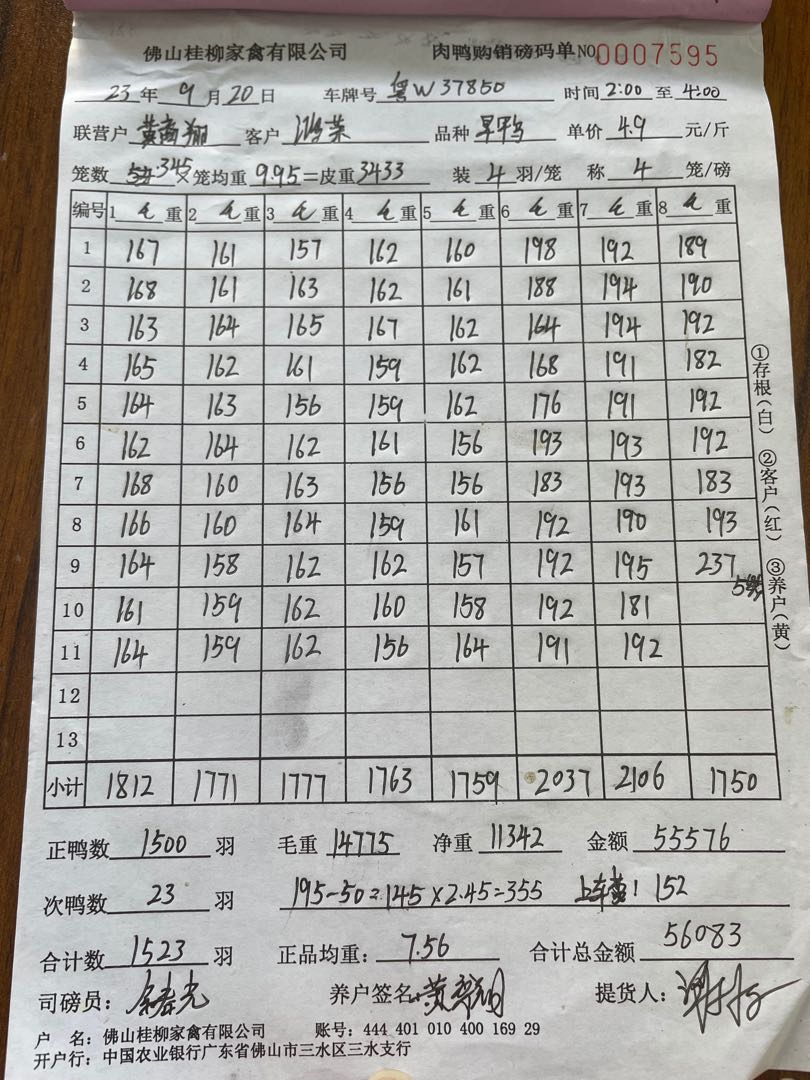 佛山桂柳家禽有限公司 肉鸭购销磅码单 NO 0007595
23 年 9 月 20 日 车牌号 粤W37850 时间 2:00 至 4:00
联营户 黄 翔 客户 鸿荣 品种 早鸭 单价 4.9 元/斤
笼数 345 × 笼均重 9.95 = 皮重 3433 装 4 羽/笼 称 4 笼/磅
编号 1 毛 重 2 毛 重 3 毛 重 4 毛 重 5 毛 重 6 毛 重 7 毛 重 8 毛 重
1 167 161 157 162 160 198 192 189
2 168 161 163 162 161 188 194 190
3 163 164 165 167 162 164 194 192
4 165 162 161 159 162 168 191 182
5 164 163 156 159 162 176 191 192
6 162 164 162 161 156 193 193 192
7 168 160 163 156 156 183 193 183
8 166 160 164 159 161 192 190 193
9 164 158 162 162 157 192 195 237
10 161 159 162 160 158 192 181
11 164 159 162 156 164 191 192
12
13
小计 1812 1771 1777 1763 1759 2037 2106 1750
①存根(白) ②客户(红) ③养户(黄)
正鸭数 1500 羽 毛重 14775 净重 11342 金额 55576
次鸭数 23 羽 195-50=145×2.45=355 上车 ! 152
合计数 1523 羽 正品均重: 7.56 合计总金额 56083
司磅员: 余春光 养户签名: 黄 翔 提货人: 谢
户 名: 佛山桂柳家禽有限公司 账号: 444 401 010 400 169 29
开户行: 中国农业银行广东省佛山市三水区三水支行